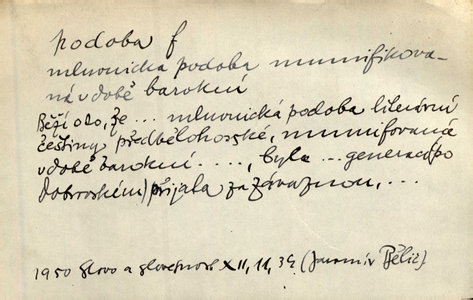 podoba f
mluvnická podoba mumifikova-
ná v době barokní
Běží o to, že ... mluvnická podoba literární
češtiny předbělohorské, mumifovaná
v době barokní ...., byla ... generací (po
Dobrovském) přijala za závaznou, ...
1950 Slovo a slovesnost XII, 11, 34 (Jaromír Bělič)